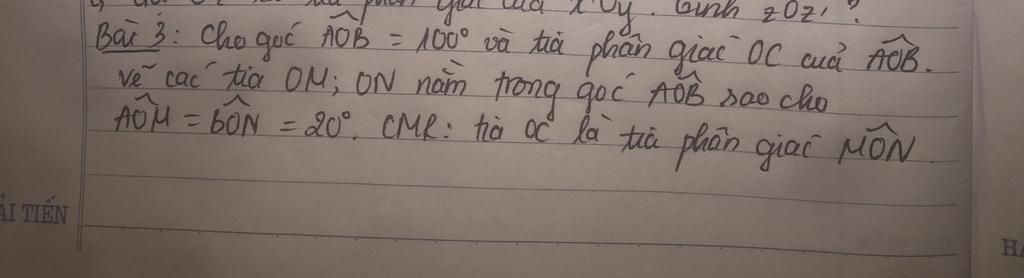 phân giác của x'Oy. Tính zOz' ?
Bài 3: Cho góc AÔB = 100° và tia phân giác OC của AÔB.
vẽ các tia OM; ON nằm trong góc AÔB sao cho
AÔM = BÔN = 20°. CMR: tia OC là tia phân giác MÔN
ẢI TIẾN
HẢ